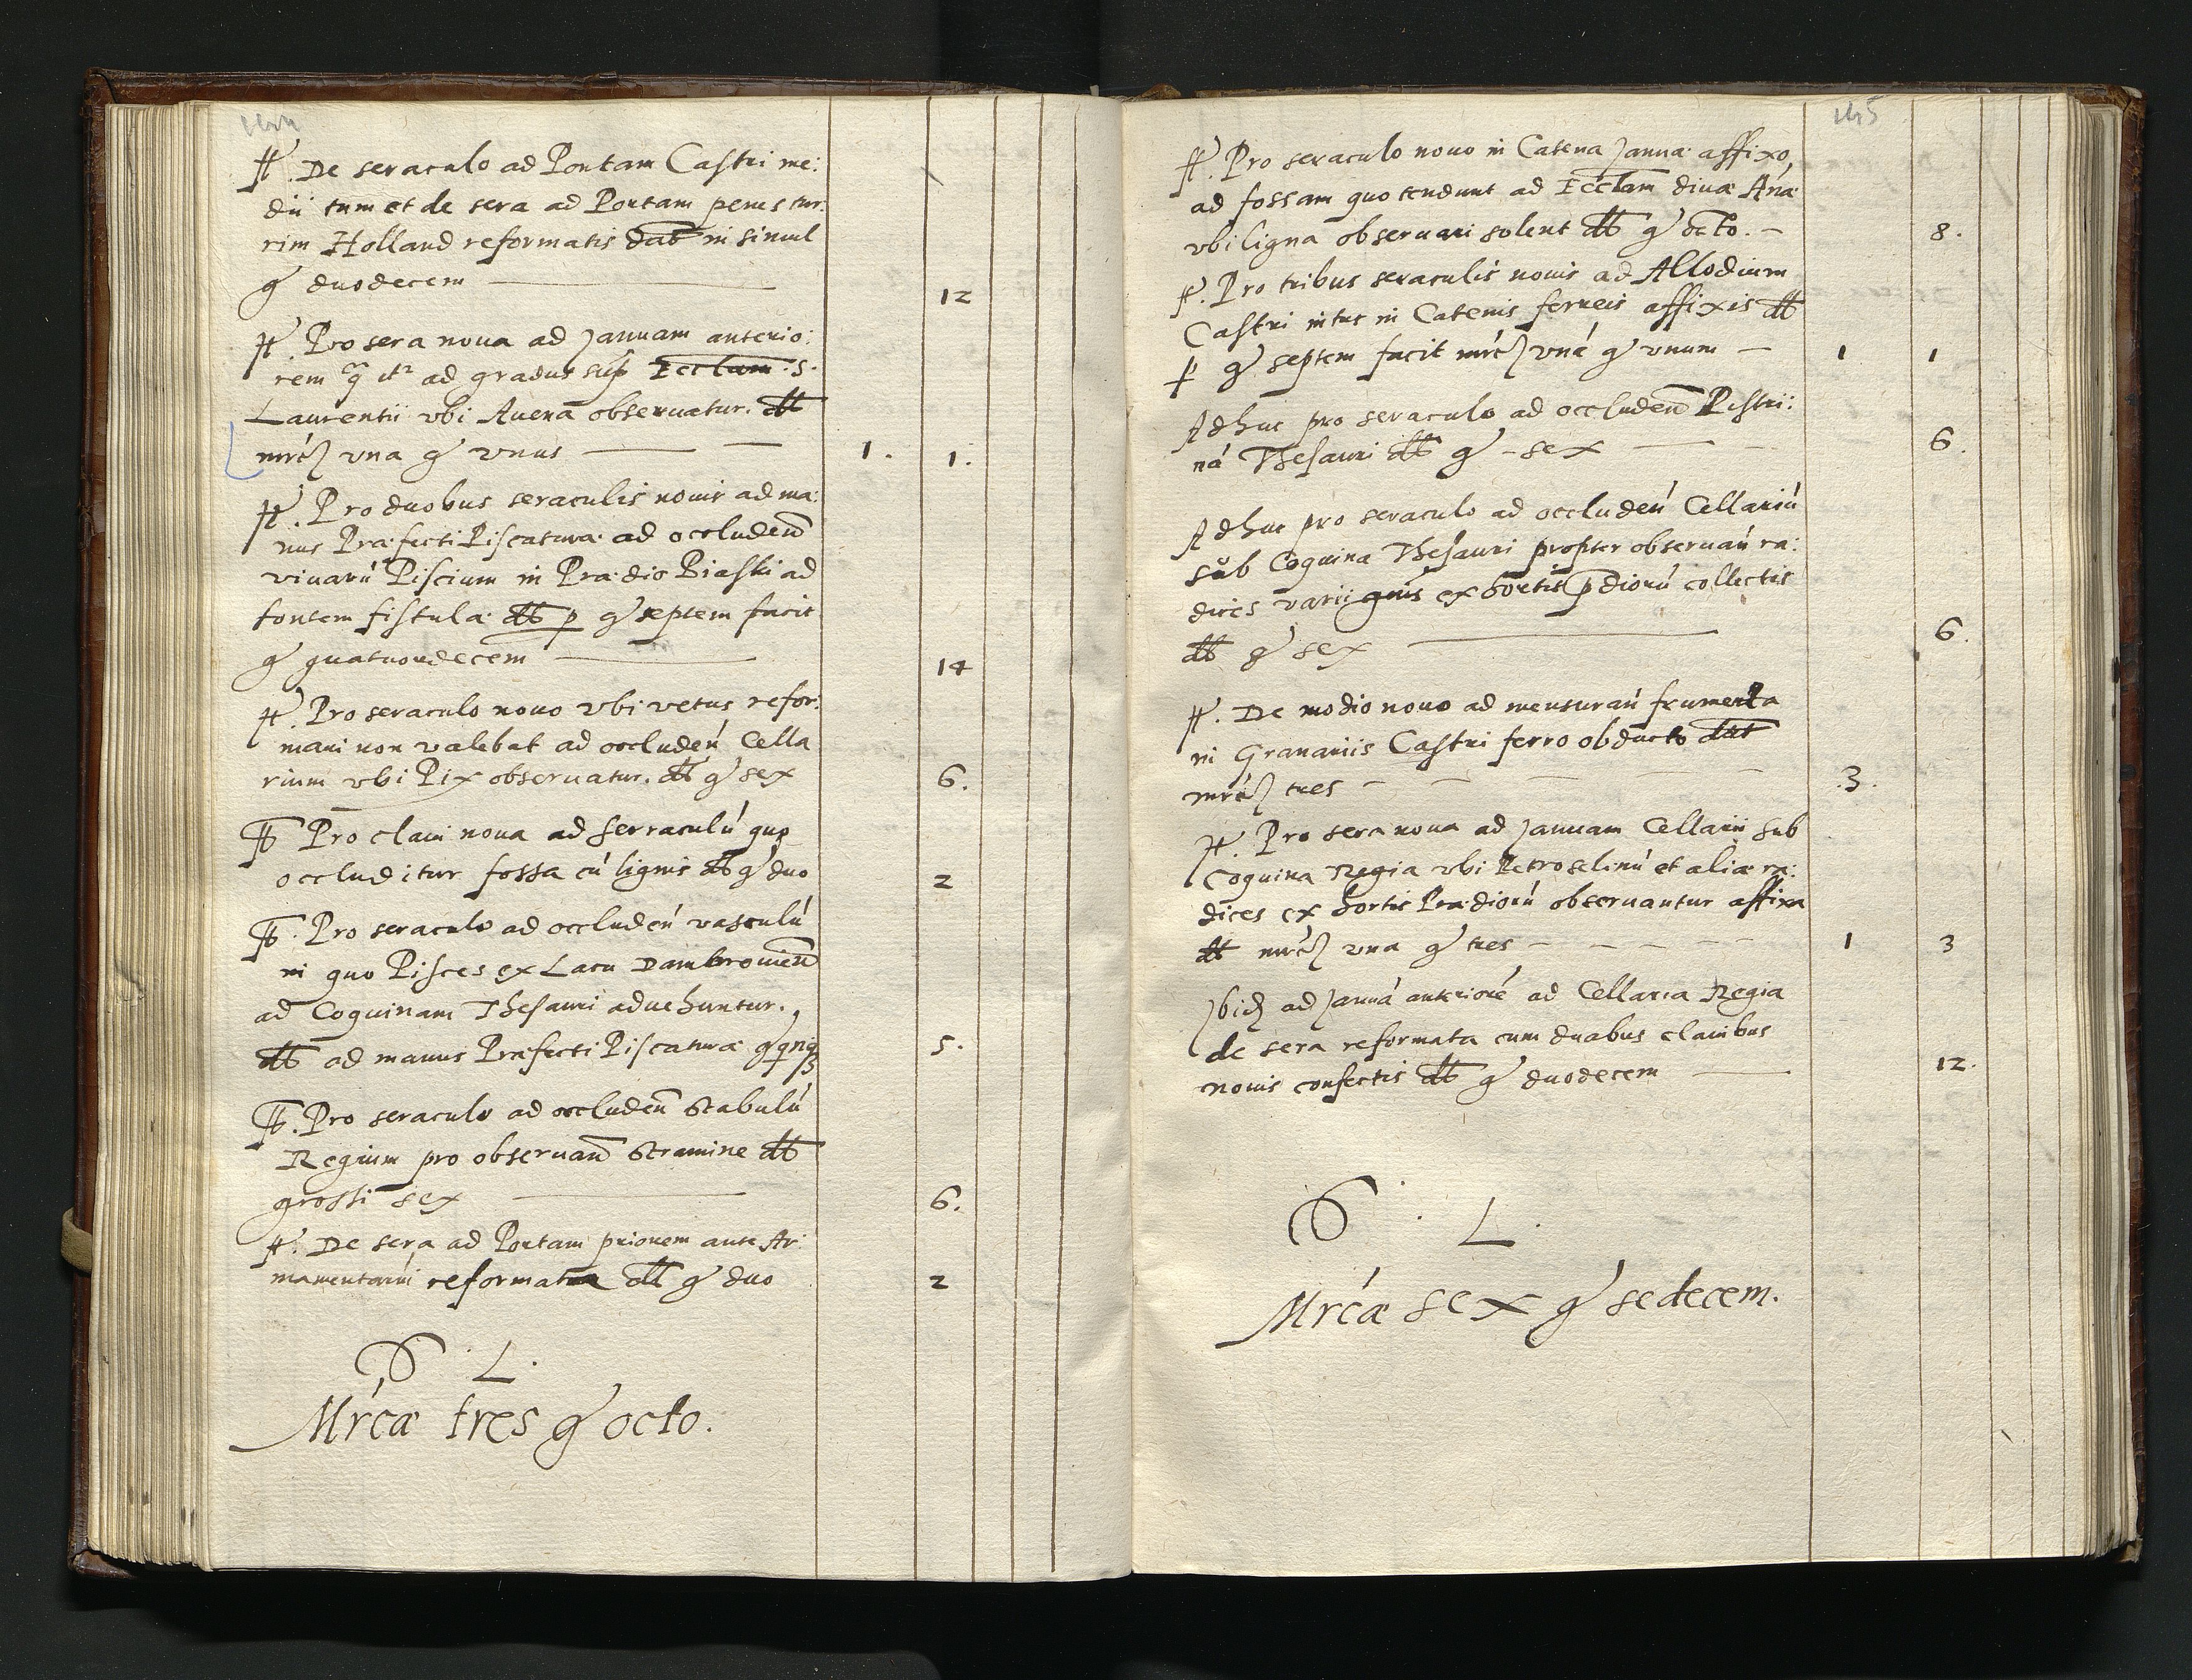 144
It. De seraculo ad Portam Castri me:
dii tum et de sera ad Portam penes tur:
rim Holland reformatis dat in simul
gr duodecem 12
It. Pro sera noua ad Januam anterio:
rem ad gradus sup Eccłam S.
Laurentii vbi Auena obseruatur. dt
mrć vna gr vnus 1. 1.
It. Pro duobus seraculis nouis ad ma:
nus Præfecti Piscaturæ ad occludeń
viuarú Piscium in Prædio Biaski ad
fontem fistulæ dt p gr septem facit
gr quatuordecem 14
It. Pro seraculo nouo vbi vetus refor:
mari non valebat ad occludeń Cella
rium vbi Pix obseruatur. dt gr sex 6.
It. Pro claui noua ad serraculú quo
occluditur fossa cú lignis dt gr duo 2
It. Pro seraculo ad occludeń vasculú
in quo Pisces ex Lacu Dambrouień
ad Coquinam Thesauri aduehuntur.
dt ad manus Præfecti Piscaturæ gr qnq 5.
It. Pro seraculo ad occludeń Stabulú
Regium pro obseruań Stramine dt
grossi sex 6.
It. De sera ad Portam priorem ante Ar:
mamentarú reformata dt gr duo 2
S. L.
Mrcæ tres gr octo.
145
It. Pro seraculo nouo in Catena Januæ affixo,
ad fossam quo tendunt ad Eccłam diuæ Anæ
vbi ligna obseruari solent dt gr octo. 8.
It. Pro tribus seraculis nouis ad Allodium
Castri intus in Catenis ferreis affixis dt
p gr septem facit mrć vná gr vnum 1 1
Adhuc pro seraculo ad occludeń Pistri:
ná Thesauri dt gr sex 6.
Adhuc pro seraculo ad occludeń Cellariú
sub Coquina Thesauri propter obseruań ra:
dices varii gnis ex hortis pdiorú collectis
dt gr sex 6.
It. De modio nouo ad mensurań frumenta
in Granariis Castri ferro obducto dat
mrć tres .3.
It. Pro sera noua ad Januam Cellarii sub
Coquina Regia vbi Petroselinú et aliæ ra:
dices ex hortis Prædiorú obseruantur affixa
dt mrć vna gr tres 1 3
Jbid ad Januá anterioré ad Cellaria Regia
de sera reformata cum duabus clauibus
nouis confectis dt gr duodecem 12.
S. L.
Mrcæ sex gr sedecem.